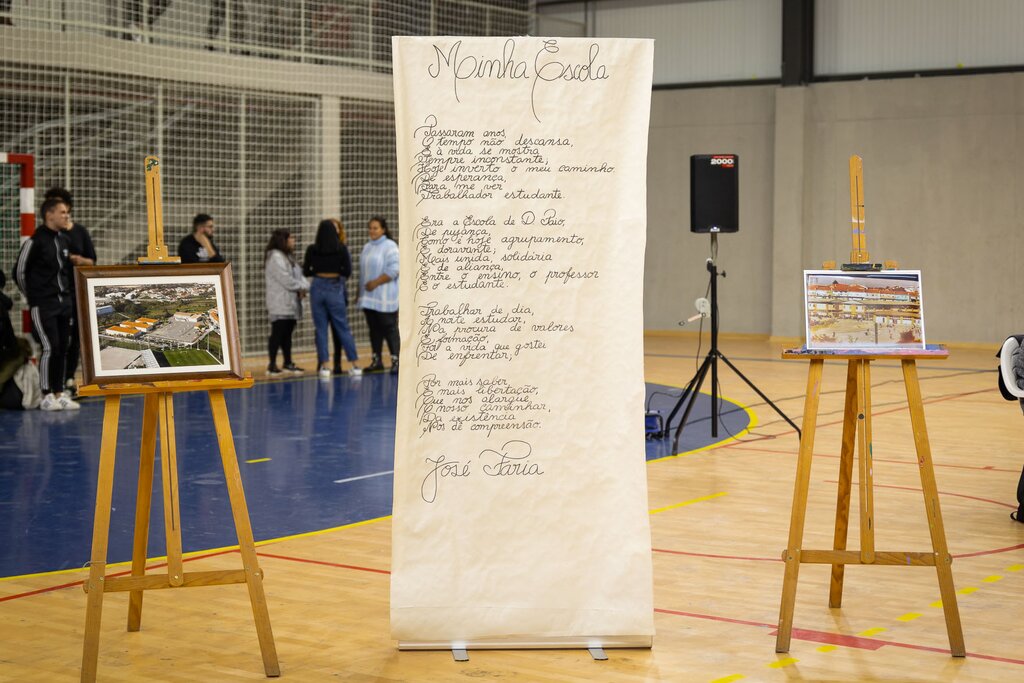 Minha Escola
Passaram anos,
O tempo não descansa,
E à vida se mostra
Sempre inconstante;
Hoje inverto o meu caminho
De esperança,
Para me ver
Trabalhador estudante.
Era a Escola de D. Paio,
De pujança,
Como é hoje agrupamento,
E doravante;
Mais unida, solidária
E de aliança,
Entre o ensino, o professor
E o estudante.
Trabalhar de dia,
À noite estudar,
Na procura de valores
E formação;
Foi a vida que gostei
De enfrentar,
Por mais saber,
E mais libertação,
Que nos alargue
O nosso caminhar,
Da existência
Nós de compreensão.
José Faria
2000